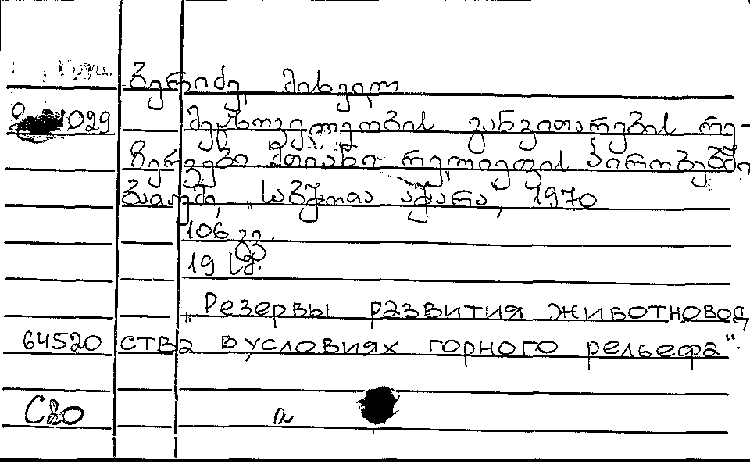 ბერიძე, მიხეილ
029 მეცხოველეობის განვითარების რე-
ზერვები მთიანი რელიეფის პირობებში
ბათუმი, „საბჭოთა აჭარა, 1970
106 გვ.
19 სმ.
„Резервы развития животновод
64520 ства в условиях горного рельефа".
С80